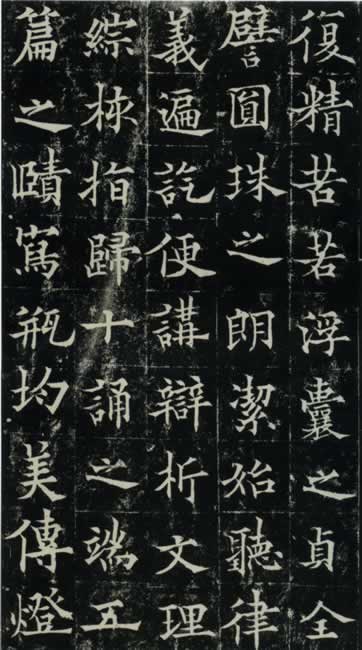 復精苦若浮囊之貞全
譬圓珠之朗潔始聽律
義遍訖便講辯析文理
綜核指歸十誦之端五
篇之賾寫瓶均美傳燈